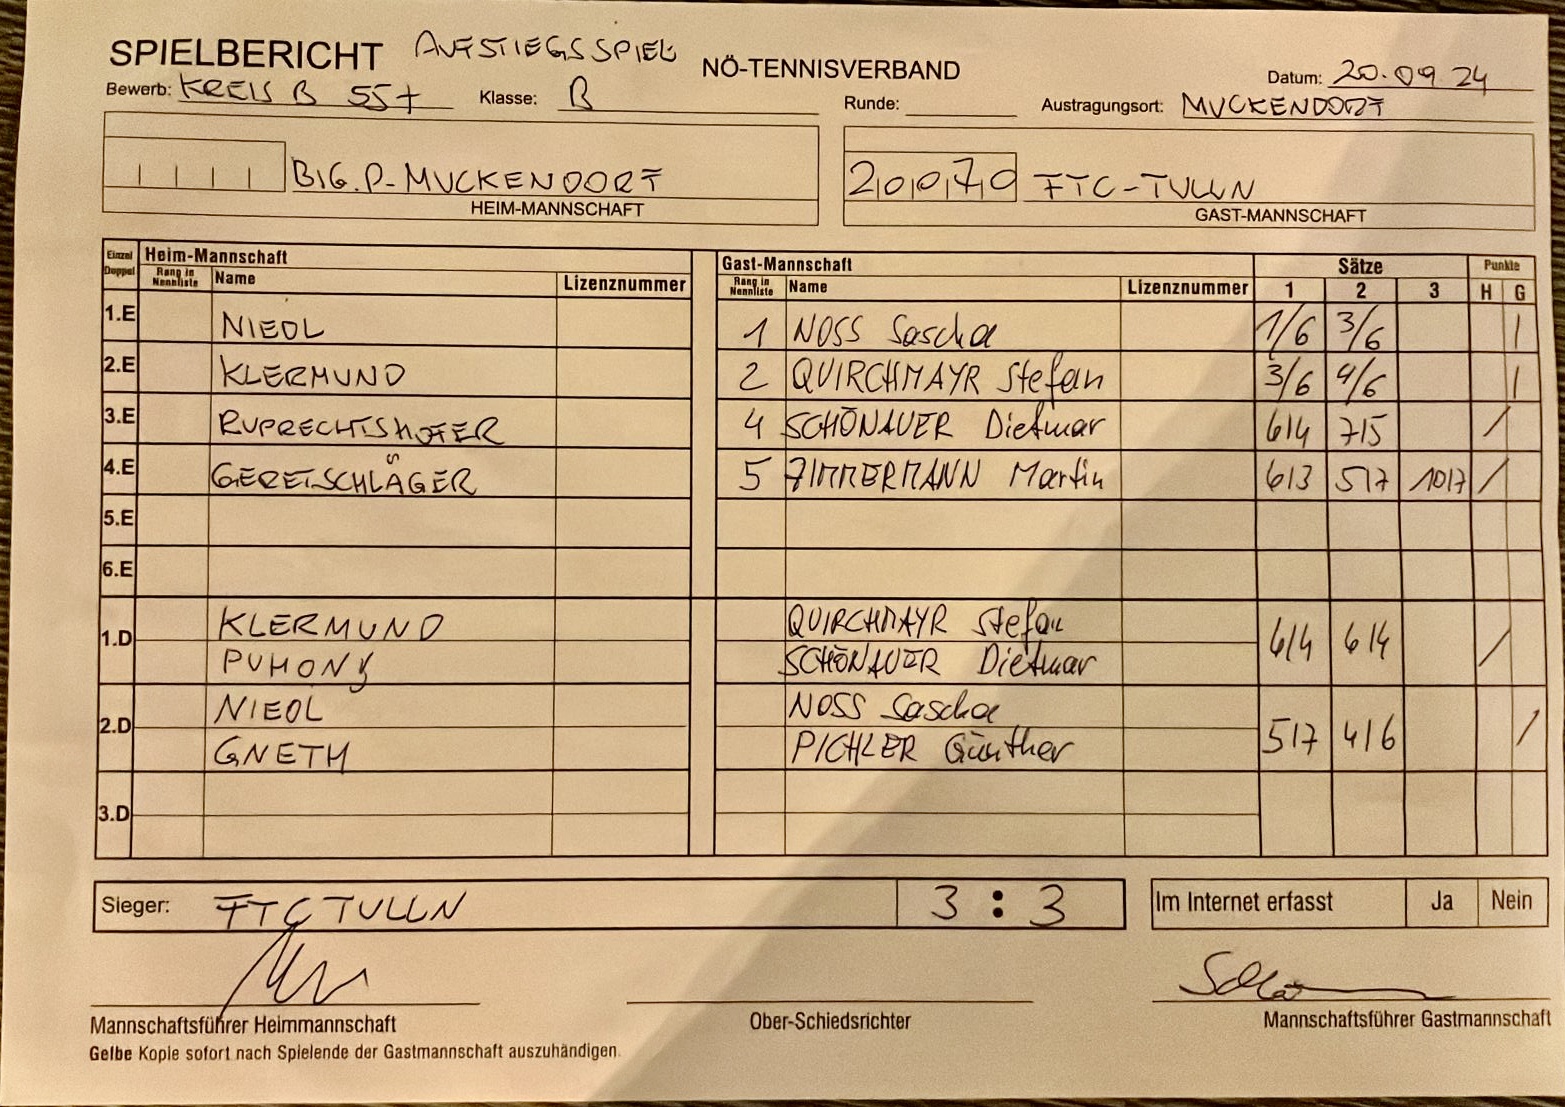 SPIELBERICHT AUFSTIEGSSPIEL NÖ-TENNISVERBAND Datum: 20.09.24
Bewerb: KREIS B 55+ Klasse: B Runde: Austragungsort: MUCKENDORF
BIG.P-MUCKENDORF 20070 FTC-TULLN
HEIM-MANNSCHAFT GAST-MANNSCHAFT
Einzel Doppel Heim-Mannschaft Gast-Mannschaft Sätze Punkte
Rang in Nennliste Name Lizenznummer Rang in Nennliste Name Lizenznummer 1 2 3 H G
1.E NIEDL 1 NOSS Sascha 1/6 3/6 |
2.E KLERMUND 2 QUIRCHMAYR Stefan 3/6 4/6 |
3.E RUPRECHTSHOFER 4 SCHÖNAUER Dietmar 6/4 7/5 /
4.E GERETSCHLÄGER 5 ZIMMERMANN Martin 6/3 5/7 10/7 /
5.E
6.E
1.D KLERMUND QUIRCHMAYR Stefan 6/4 6/4 /
PUHONY SCHÖNAUER Dietmar
2.D NIEDL NOSS Sascha 5/7 4/6 /
GNETH PICHLER Günther
3.D
Sieger: FTC TULLN 3 : 3 Im Internet erfasst Ja Nein
Mannschaftsführer Heimmannschaft Ober-Schiedsrichter Mannschaftsführer Gastmannschaft
Gelbe Kopie sofort nach Spielende der Gastmannschaft auszuhändigen.